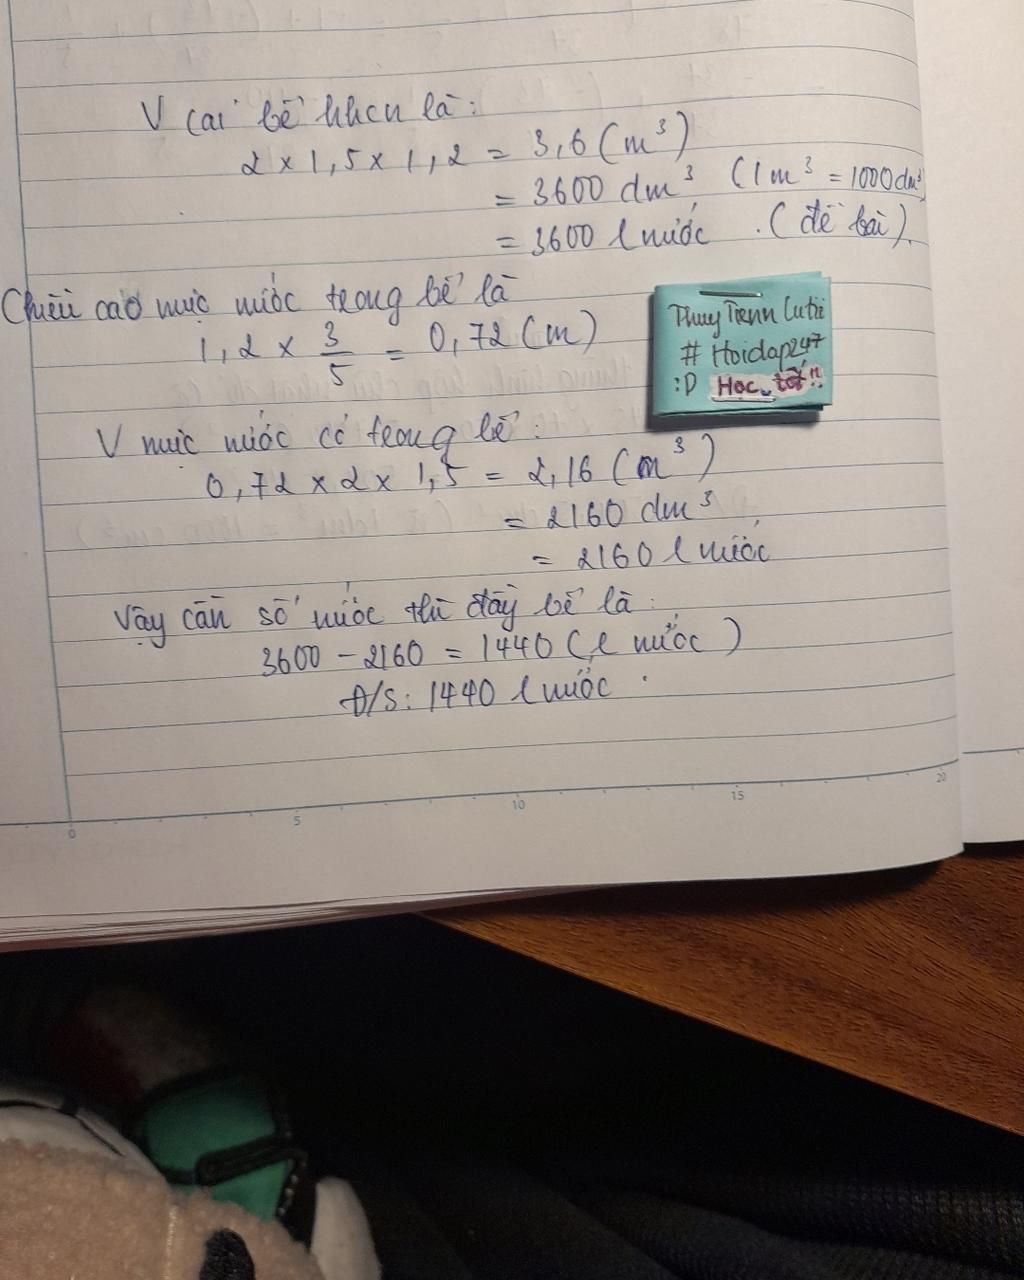 V cái bể hhcn là:
2 x 1,5 x 1,2 = 3,6 (m³)
= 3600 dm³ (1m³ = 1000dm³)
= 3600 l nước . (đề bài).
Chiều cao mực nước trong bể là
1,2 x 3/5 = 0,72 (m)
Thuy Tienn Cutii
# Hoidap247
:D Học tốt!!
V mực nước có trong bể:
0,72 x 2 x 1,5 = 2,16 (m³)
= 2160 dm³
= 2160 l nước
Vậy cần số nước thì đầy bể là:
3600 - 2160 = 1440 (l nước)
Đ/S: 1440 l nước.
0 5 10 15 20